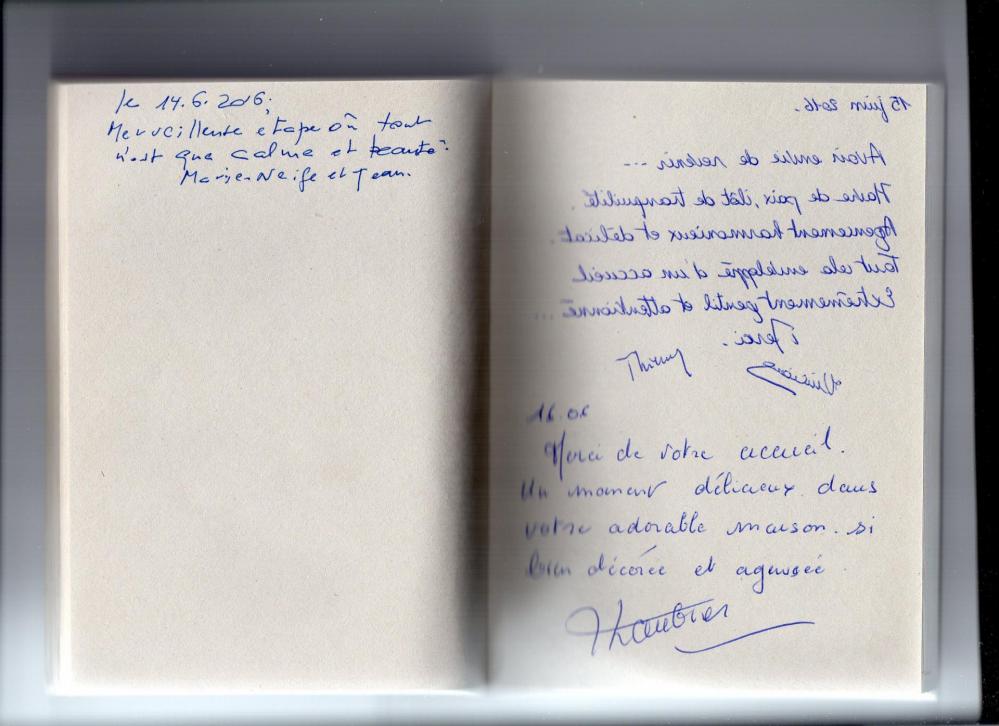 le 14.6.2016;
Merveilleuse etape où tout
n'est que calme et beauté.
Marie-Neige et Jean.
15 juin 2016.
Avoir envie de revenir...
Havre de paix, îlôt de tranquilité.
Agencement harmonieux et délicat.
Tout cela enveloppé d'un accueil
Extrêmement gentil et attentionné...
Merci.
Thierry
16.06
Merci de votre accueil.
Un moment délicieux dans
votre adorable maison. si
bien décorée et agencée